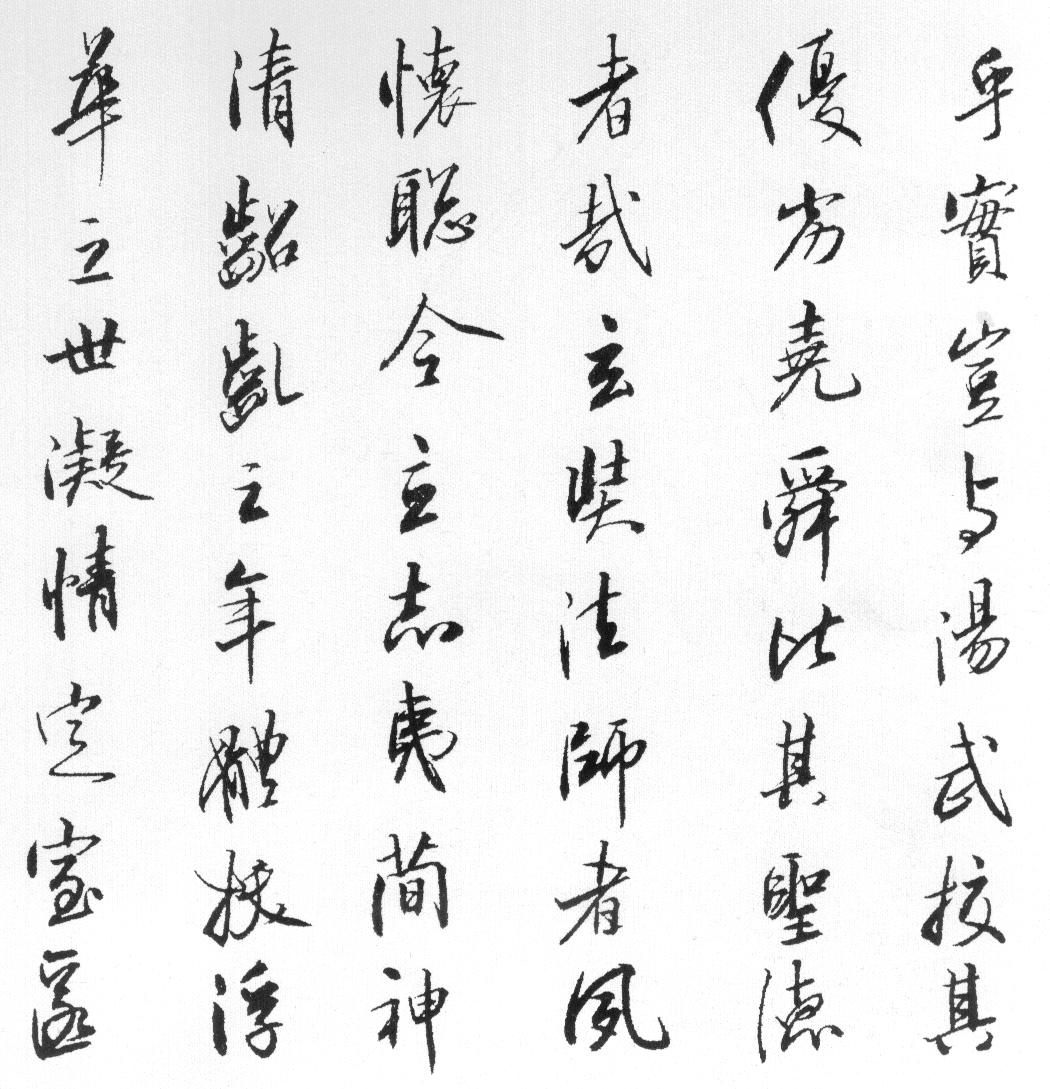 乎實豈与湯武挍其
優劣堯舜比其聖德
者哉玄奘法師者夙
懷聰令立志夷簡神
清齠齓之年體拔浮
華之世凝情定室匿